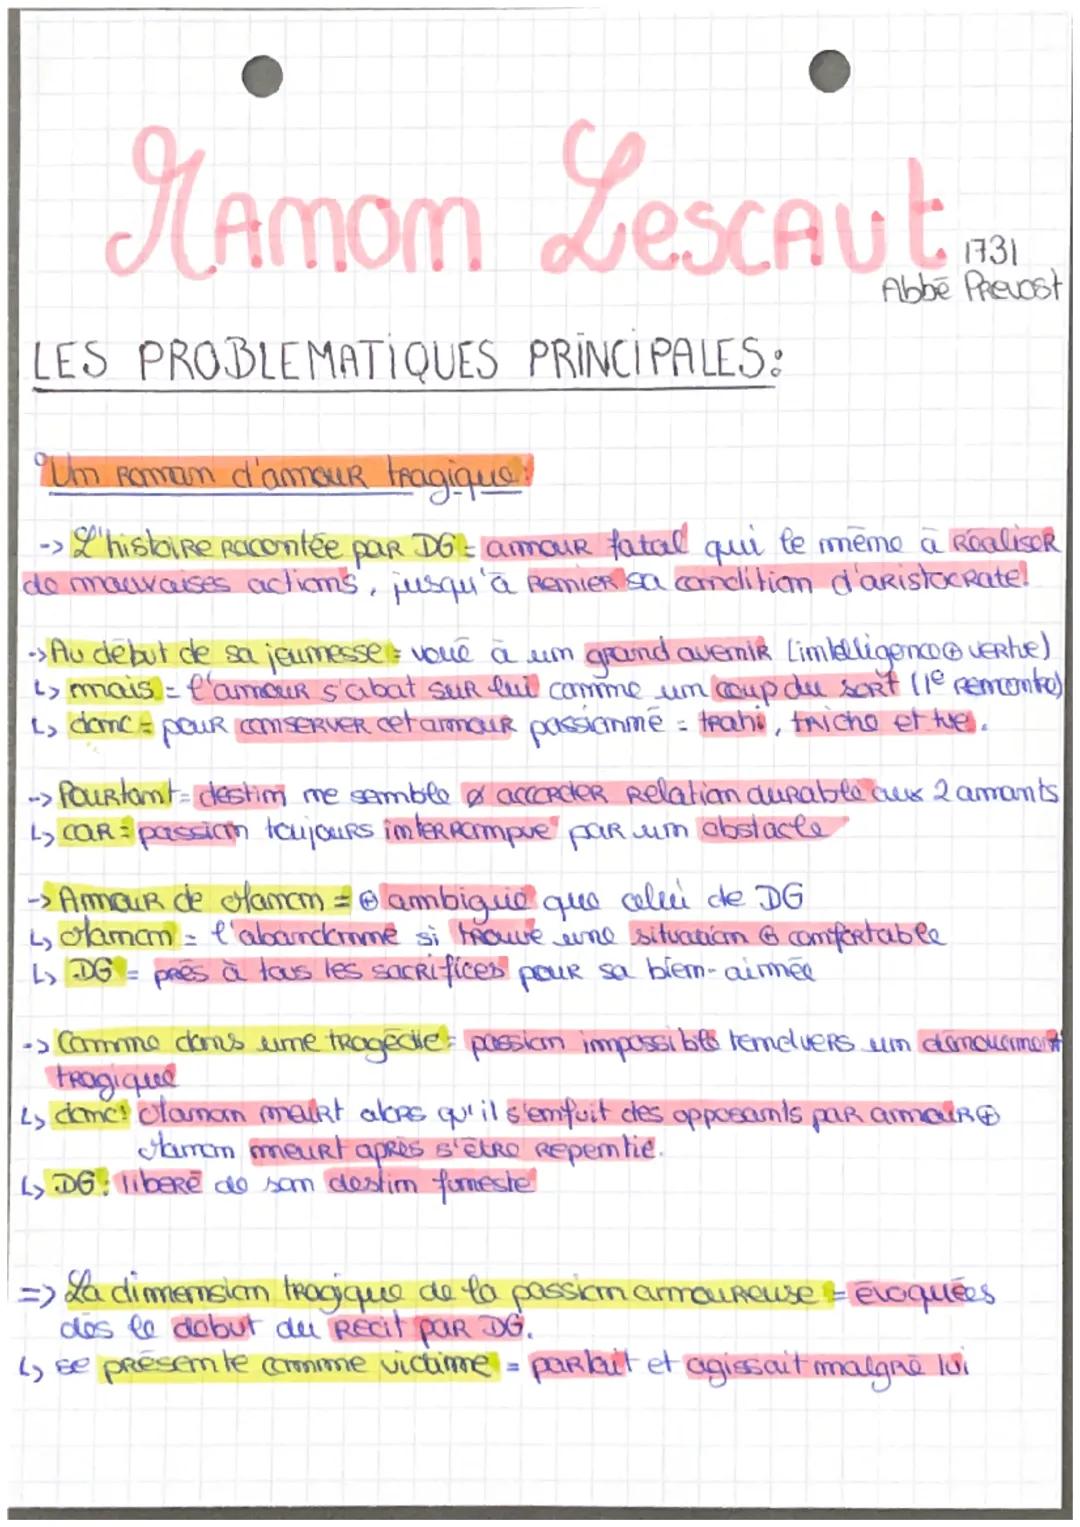 Manon Lescaut
1731
Abbé Prevost
LES PROBLEMATIQUES PRINCIPALES:
°Un roman d'amour tragique:
-> L'histoire racontée par DG = amour fatal qui le mène à réaliser
de mauvaises actions, jusqu'à renier sa condition d'aristocrate.
-> Au début de sa jeunesse = voué à un grand avenir (intelligence ⊕ vertue)
↳ mais = l'amour s'abat sur lui comme un coup du sort (1e rencontre)
↳ donc = pour conserver cet amour passionné = trahi, triche et tue.
-> Pourtant = destin ne semble ø accorder relation durable aux 2 amants
↳ car = passion toujours interrompue par un obstacle
-> Amour de Manon = ⊕ ambiguië que celui de DG
↳ Manon = l'abandonne si trouve une situation ⊕ comfortable
↳ DG = près à tous les sacrifices pour sa bien-aimée
-> Comme dans une tragédie = passion impossible tend vers un dénouement
tragique
↳ donc: Manon meurt alors qu'il s'enfuit des opposants par amour ⊕
Manon meurt après s'être repentie.
↳ DG: libéré de son destin funeste
=> La dimension tragique de la passion amoureuse = évoquées
dès le début du récit par DG.
↳ se présente comme victime = parlait et agissait malgré lui